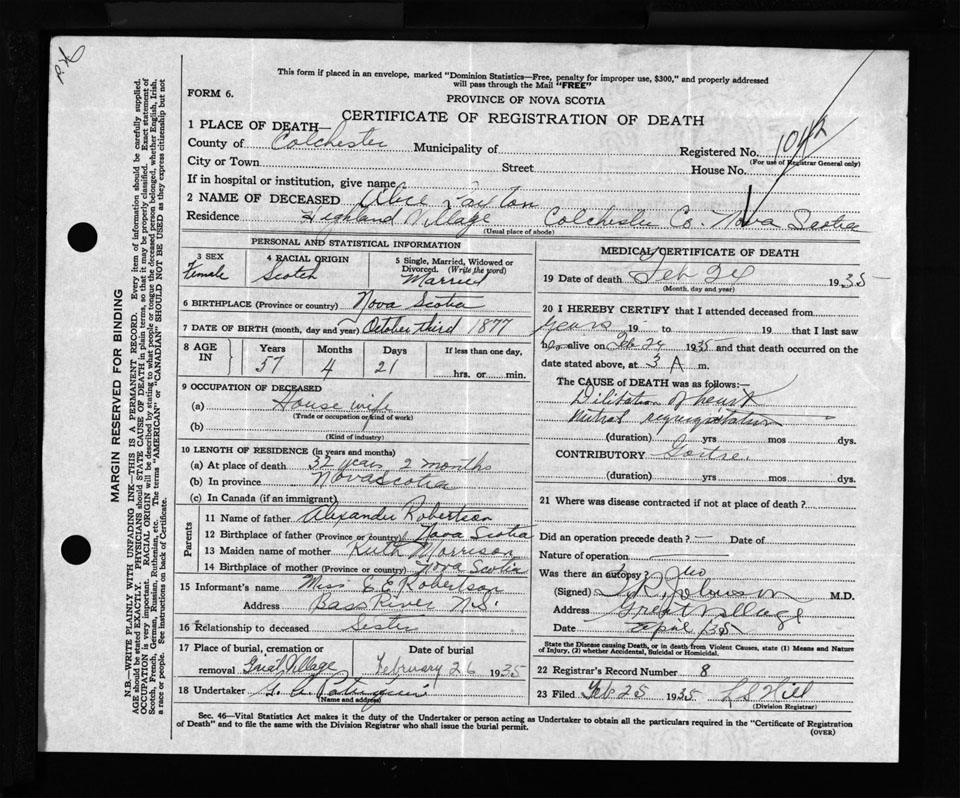 This form if placed in an envelope, marked "Dominion Statistics—Free, penalty for improper use, $300," and properly addressed
will pass through the Mail "FREE"
FORM 6.
PROVINCE OF NOVA SCOTIA
CERTIFICATE OF REGISTRATION OF DEATH
MARGIN RESERVED FOR BINDING
N.B.—WRITE PLAINLY WITH UNFADING INK—THIS IS A PERMANENT RECORD. Every item of information should be carefully supplied.
AGE should be stated EXACTLY. PHYSICIANS should STATE CAUSE OF DEATH in plain terms, so that it may be properly classified. Exact statement of
OCCUPATION is very important. RACIAL ORIGIN will be described by stating to what people or tongue the deceased person belonged, whether English, Irish,
Scotch, French, German, Russian, Ruthenian, etc. The terms "AMERICAN" or "CANADIAN" SHOULD NOT BE USED as they express citizenship but not
a race or people. See instructions on back of Certificate.
1 PLACE OF DEATH—
County of Colchester Municipality of Registered No. 1042
(For use of Registrar General only)
City or Town Street House No.
If in hospital or institution, give name
2 NAME OF DECEASED Alice
Residence Highland Village Colchester Co. Nova Scotia
(Usual place of abode)
PERSONAL AND STATISTICAL INFORMATION
3 SEX Female
4 RACIAL ORIGIN Scotch
5 Single, Married, Widowed or
Divorced. (Write the word)
Married
6 BIRTHPLACE (Province or country) Nova Scotia
7 DATE OF BIRTH (month, day and year) October third 1877
8 AGE IN Years 57 Months 4 Days 21 If less than one day,
hrs. or min.
9 OCCUPATION OF DECEASED
(a) House wife
(Trade or occupation or kind of work)
(b)
(Kind of industry)
10 LENGTH OF RESIDENCE (in years and months)
(a) At place of death 32 years 2 months
(b) In province Nova Scotia
(c) In Canada (if an immigrant)
Parents
11 Name of father Alexander Robertson
12 Birthplace of father (Province or country) Nova Scotia
13 Maiden name of mother Ruth Morrison
14 Birthplace of mother (Province or country) Nova Scotia
15 Informant's name Miss E E Robertson
Address Bass River N.S.
16 Relationship to deceased Sister
17 Place of burial, cremation or
removal Great Village
Date of burial
February 26 1935
18 Undertaker
(Name and address)
MEDICAL CERTIFICATE OF DEATH
19 Date of death Feb 24 1935
(Month, day and year)
20 I HEREBY CERTIFY that I attended deceased from
years 19 to 19 that I last saw
h alive on Feb 24 1935 and that death occurred on the
date stated above, at 3 A m.
The CAUSE OF DEATH was as follows:—
Dilitation of heart
Mitral regurgitation
(duration) yrs mos dys.
CONTRIBUTORY Goitre.
(duration) yrs mos dys.
21 Where was disease contracted if not at place of death?
Did an operation precede death? — Date of
Nature of operation
Was there an autopsy? No
(Signed) M.D.
Address Great Village
Date
State the Disease causing Death, or in death from Violent Causes, state (1) Means and Nature
of Injury, (2) whether Accidental, Suicidal or Homicidal.
22 Registrar's Record Number 8
23 Filed Feb 25 1935 L S Hill
(Division Registrar)
Sec. 46—Vital Statistics Act makes it the duty of the Undertaker or person acting as Undertaker to obtain all the particulars required in the "Certificate of Registration
of Death" and to file the same with the Division Registrar who shall issue the burial permit.
(OVER)